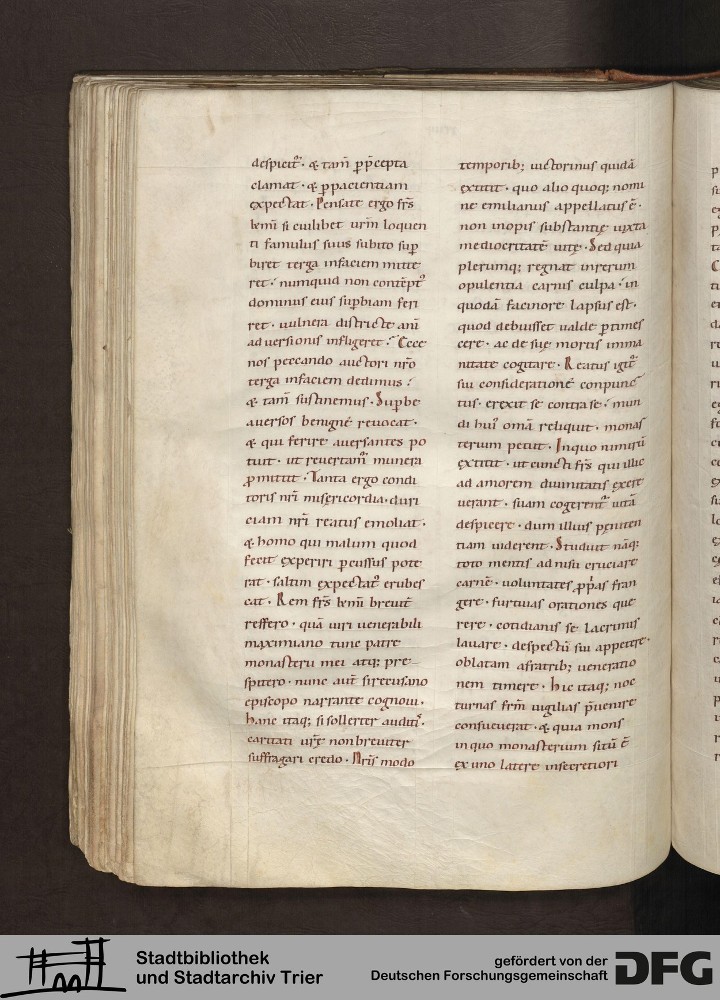 despicit᷑. & tam̅ p̱p̅cepta
clamat. & p̱pacientiam
expectat. Pensate ergo fr̅s
kemi si cuilibet ur̅m loquen
ti famulus suus subito sup̱
biret terga infaciem mitte
ret. numquid non contẽpt᷑
dominus eius sup̱biam feri
ret. uulnera districte ani
aduersionis infligeret. Ecce
nos peccando auctori nr̅o
terga infaciem dedimus.
& tam̅ sustinemus. Sup̱be
auersos benigne reuocat.
& qui ferire auersantes po
tuit. ut reuertam᷑ munera
ꝓmittit. Tanta ergo condi
toris nr̅i misericordia. duri
ciam nr̅i reatus emoliat.
& homo qui malum quod
fecit experiri p̱cussus pote
rat. saltim expectat᷑ erubes
cat. Rem fr̅s kemi breuit̅
reffero. quã uiri uenerabili
maximiano tunc patre
monasterii mei atq; pre
spitero. nunc aut̅ siracusano
episcopo narrante cognoui.
hanc itaq; si sollerter auditi᷑.
caritati ur̅ę non breuiter
suffragari credo. Nr̅is modo
temporib; uictorinus quidã
extitit. quo alio quoq; nomi
ne emilianus appellatus ẽ.
non inopis substantię iuxta
mediocritatẽ uitę. Sed quia
plerumq; regnat inrerum
opulentia carnis culpa. in
quodã facinore lapsus est.
quod debuisset ualde p̱times
cere. ac de suę mortis imma
nitate cogitare. Reatus igit᷑
sui consideratione conpunc
tus. erexit se contra se. mun
di hui᷒ omã reliquit. monas
terium petiit. Inquo nimirũ
extitit. ut cuncti fr̅s qui illic
ad amorem diuinitatis exere
uerant. suam cogerent᷑ uitã
despicere. dum illius pęniten
tiam uiderent. Studuit nãq;
toto mentis adnisu cruciare
carnẽ. uoluntates ꝓp̅as fran
gere. furtiuas orationes que
rere. cotidianis se lacrimis
lauare. despectũ sui appetere.
oblatam afratrib; ueneratio
nem timere. hic itaq; noc
turnas fr̅m uigilias p̅uenire
consueuerat. & quia mons
inquo monasterium sitũ ẽ
ex uno latere insecretiori
Stadtbibliothek
und Stadtarchiv Trier
gefördert von der
Deutschen Forschungsgemeinschaft
DFG